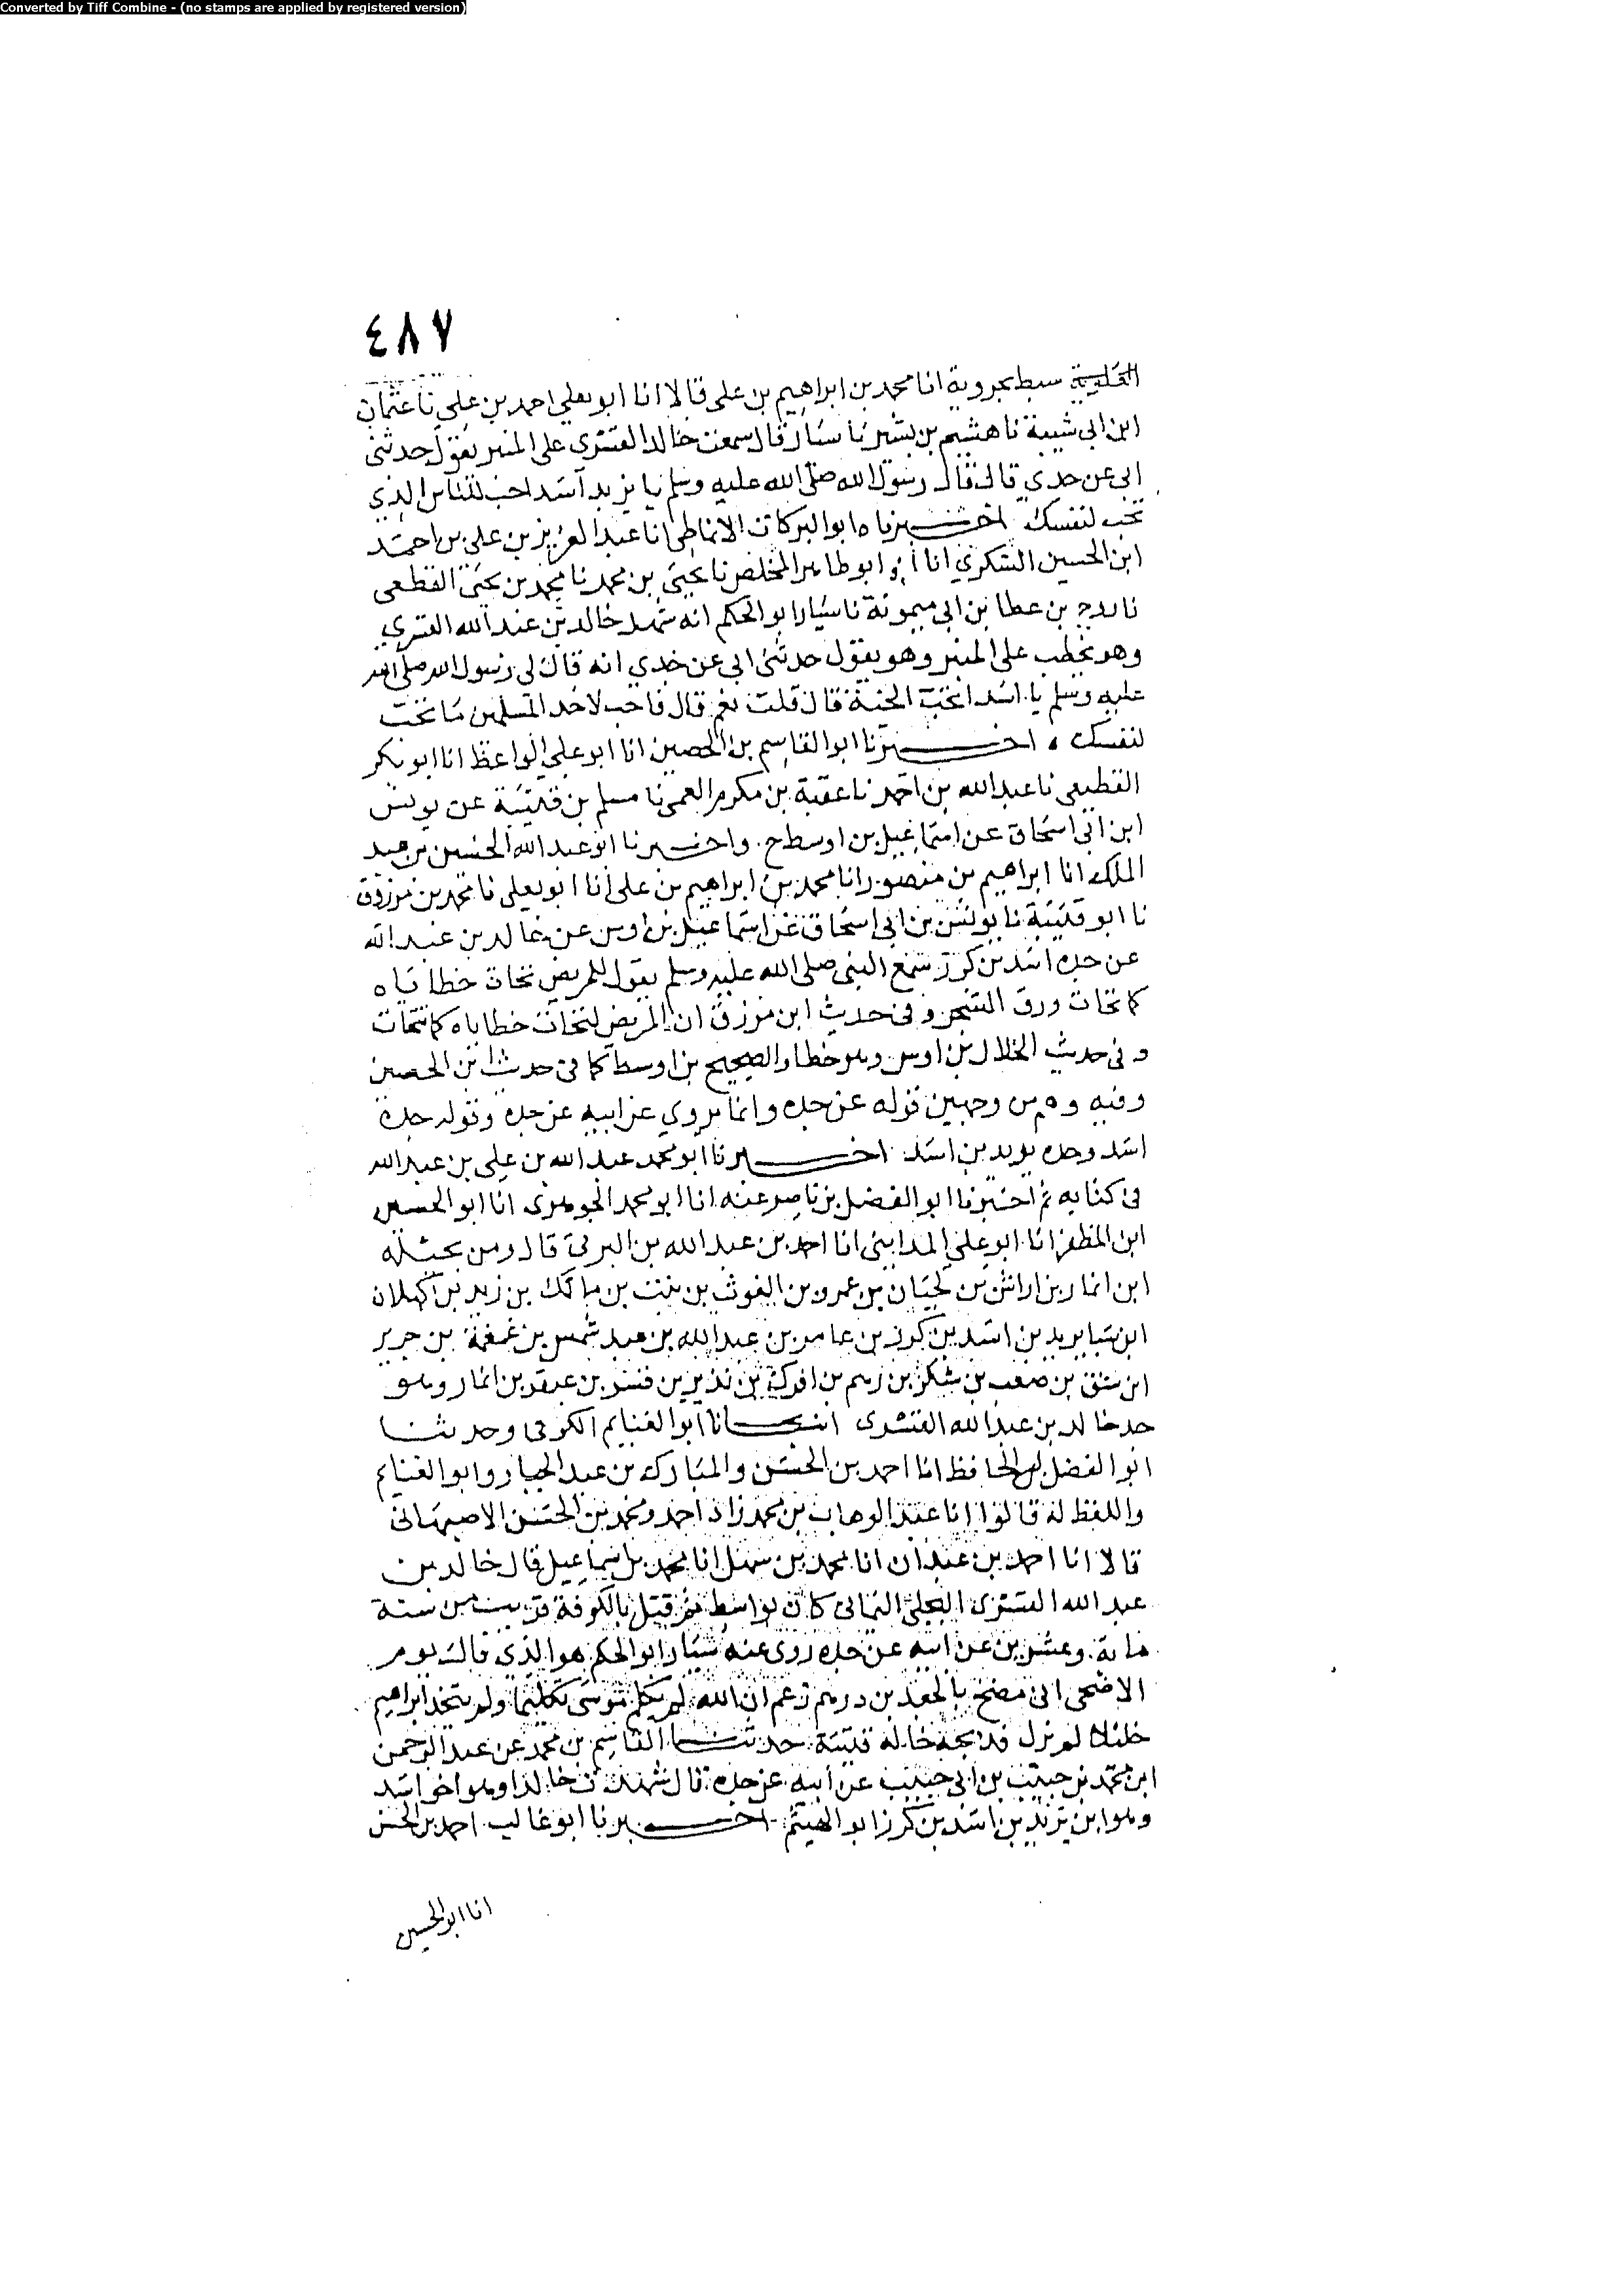 Converted by Tiff Combine - (no stamps are applied by registered version)
٤٨٧
سبط بحروية انا محمد بن ابراهيم بن على قالا انا ابو يعلى احمد بن على نا عثمان
ابن ابى شيبة نا هشيم بن بشير نا سيار قال سمعت خالد القسرى على المنبر يقول حدثنى
ابى عن جدي قال قال رسول الله صلى الله عليه وسلم يا يزيد بن اسد احب للناس الذي
تحب لنفسك اخبرناه ابو البركات الانماطى انا عبد العزيز بن على بن احمد
ابن الحسين السكري انا ابو طاهر المخلص نا يحيى بن محمد نا محمد بن يحيى القطعى
نا روح بن عطا بن ابى ميمونة نا سيار ابو الحكم انه شهد خالد بن عبد الله القسري
وهو يخطب على المنبر وهو يقول حدثنى ابى عن جدي انه قال لى رسول الله صلى الله
عليه وسلم يا اسد اتحب الجنة قال قلت نعم قال فاحب لاحد المسلمين ما تحب
لنفسك اخبرنا ابو القاسم بن الحصين انا ابو على الواعظ انا ابو بكر
القطيعى نا عبد الله بن احمد نا عقبة بن مكرم العمى نا مسلم بن قتيبة عن يونس
ابن ابى اسحاق عن اسماعيل بن اوسط ح واخبرنا ابو عبد الله الحسين بن عبد
الملك انا ابراهيم بن منصور انا محمد بن ابراهيم بن على انا ابو يعلى نا محمد بن مرزوق
نا ابو قتيبة نا يونس بن ابى اسحاق عن اسماعيل بن اوس عن خالد بن عبد الله
عن جده اسد بن كرز سمع النبى صلى الله عليه وسلم يقول المريض تحات خطاياه
كما تحات ورق الشجر وفى حديث ابن مرزوق ان المريض لتحات خطاياه كما تتحات
وفى حديث الخلال بن اوس وهو خطا والصحيح بن اوسط كما فى حديث ابن الحصين
وفيه وهم من وجهين قوله عن جده وانما يروي عن ابيه عن جده وقوله جده
اسد وجده يزيد بن اسد اخبرنا ابو محمد عبد الله بن على بن عبد الله
فى كتابه ثم اخبرنا ابو الفضل بن ناصر عنه انا ابو محمد الجوهرى انا ابو الحسين
ابن المظفر انا ابو على المداينى انا احمد بن عبد الله بن البرقى قال ومن بجيلة
ابن انمار بن اراش بن لحيان بن عمرو بن الغوث بن نبت بن مالك بن زيد بن كهلان
ابن سبا يزيد بن اسد بن كرز بن عامر بن عبد الله بن عبد شمس بن غمغمة بن جرير
ابن شق بن صعب بن يشكر بن رهم بن افرك بن نذير بن قسر بن عبقر بن انمار وهو
جد خالد بن عبد الله القسرى انبانا ابو الغنايم الكوفى وحدثنا
ابو الفضل الحافظ انا احمد بن الحسن والمبارك بن عبد الجبار وابو الغنايم
واللفظ له قالوا انا عبد الوهاب بن محمد زاد احمد ومحمد بن الحسن الاصبهانى
قالا انا احمد بن عبدان انا محمد بن سهل انا محمد بن اسماعيل قال خالد بن
عبد الله القسرى البجلى اليمانى كان بواسط ثم قتل بالكوفة قريب من سنة
ماية وعشرين عن ابيه عن جده روى عنه سيار ابو الحكم هو الذى قال يوم
الاضحى انى مضح بالجعد بن درهم زعم ان الله لم يكلم موسى تكليما ولم يتخذ ابراهيم
خليلا ثم نزل فذبحه قاله قتيبة حدثنا القاسم بن محمد عن عبد الرحمن
ابن محمد بن حبيب بن ابى حبيب عن ابيه عن جده قال شهدت خالدا وهو اخو اسد
وهو ابن يزيد بن اسد بن كرز ابو الهيثم اخبرنا ابو غالب احمد بن الحسن
انا ابو الحسين